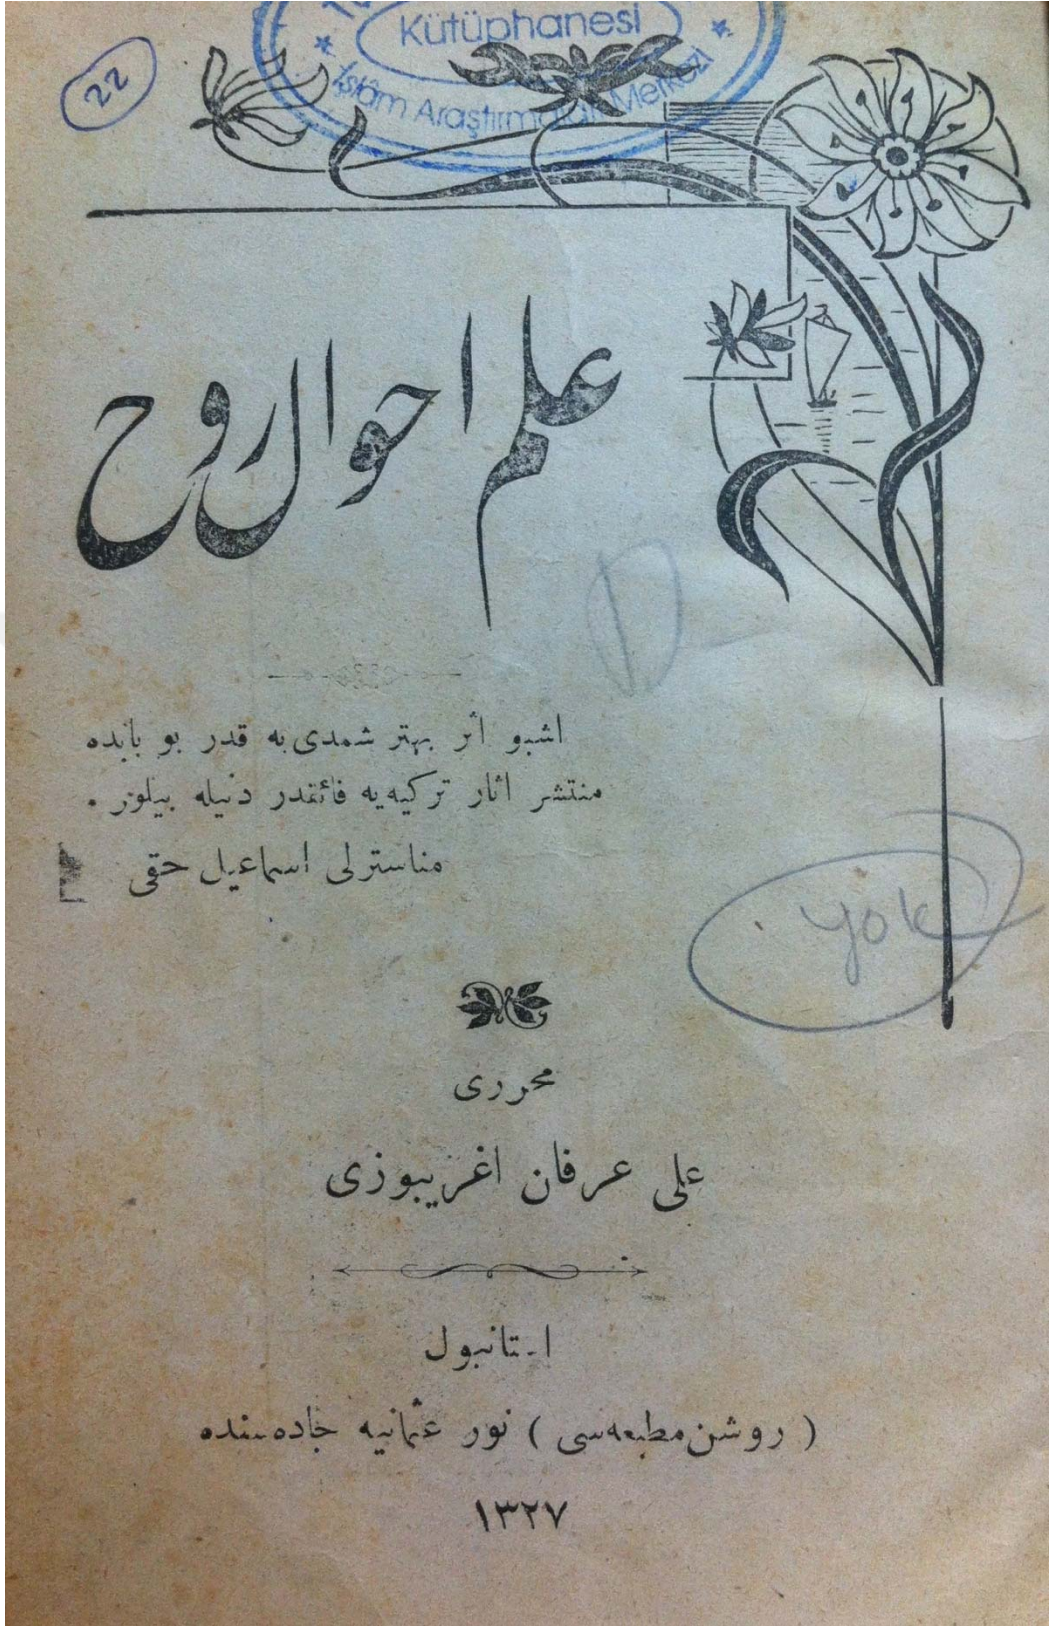 Kütüphanesi
İslâm Araştırmaları Merkezi
22
علم احوال روح
اشبو اثر بهتر شمدی‌یه قدر بو بابده
منتشر اثار ترکیه‌یه فائقدر دنیله بیلور .
مناسترلی اسماعیل حقی
yok
محرری
علی عرفان اغریبوزی
استانبول
( روشن مطبعه‌سی ) نور عثمانیه جاده‌سنده
١٣٢٧